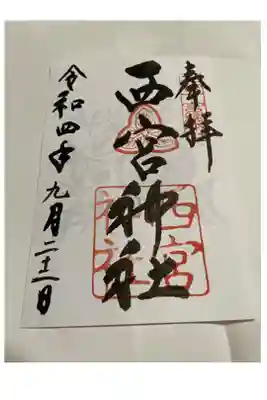 奉拝
西宮神社
西宮神社
令和四年九月二十二日